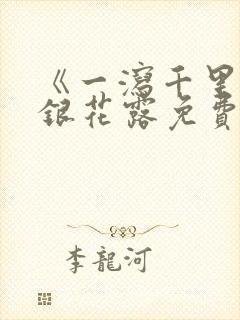 《一瀉千里
銀花露免費
李龍河